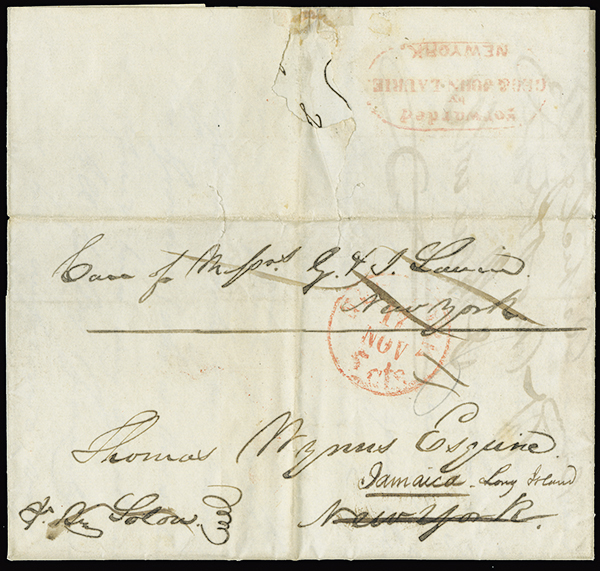 NEW YORK
GEO & JOHN LAURIE
BY
Forwarded
Care of Messrs G. & J. Laurie
New York
NEW
17
NOV
5 cts
Thomas Wynns Esquire
Jamaica Long Island
New York.